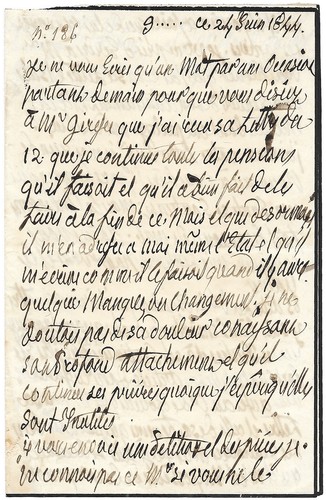 nº 186
9..... ce 24 Juin 1844.
Je ne vous Ecris qu'un Mot par une Occasion
partant demain pour que vous disiez
à Mr que j'ai reçu sa lettre du
12 que je continue toute les pensions
qu'il faisait et qu'il a bien fait de le
faire à la fin de ce Mois et que desormais
il m'en adresse a moi même l'Etat et qu'il
m'ecrive comme il le faisait quand il y aura
quelque Manques ou Changement. Je ne
doutois pas de sa douleur connaissant
son profond attachement et qu'il
continue ses prières quoique j'espère qu'elles
sont Inutiles
Je vous envois une lettre et des pièces je
ne connois pas ce Mr si vous ne le